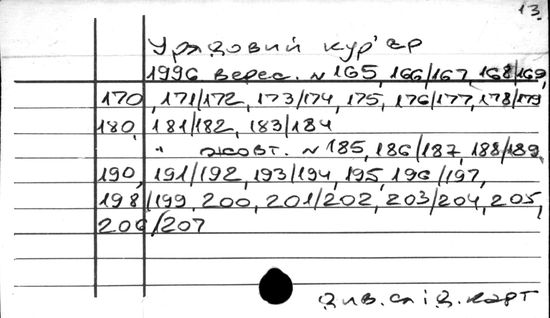 13.
Урядовий кур'єр
1996 верес. №165, 166/167, 168/169,
170, 171/172, 173/174, 175, 176/177, 178/179
180, 181/182, 183/184
" жовт. №185, 186/187, 188/189,
190, 191/192, 193/194, 195, 196/197,
198/199, 200, 201/202, 203/204, 205,
206/207
див. слід. карт